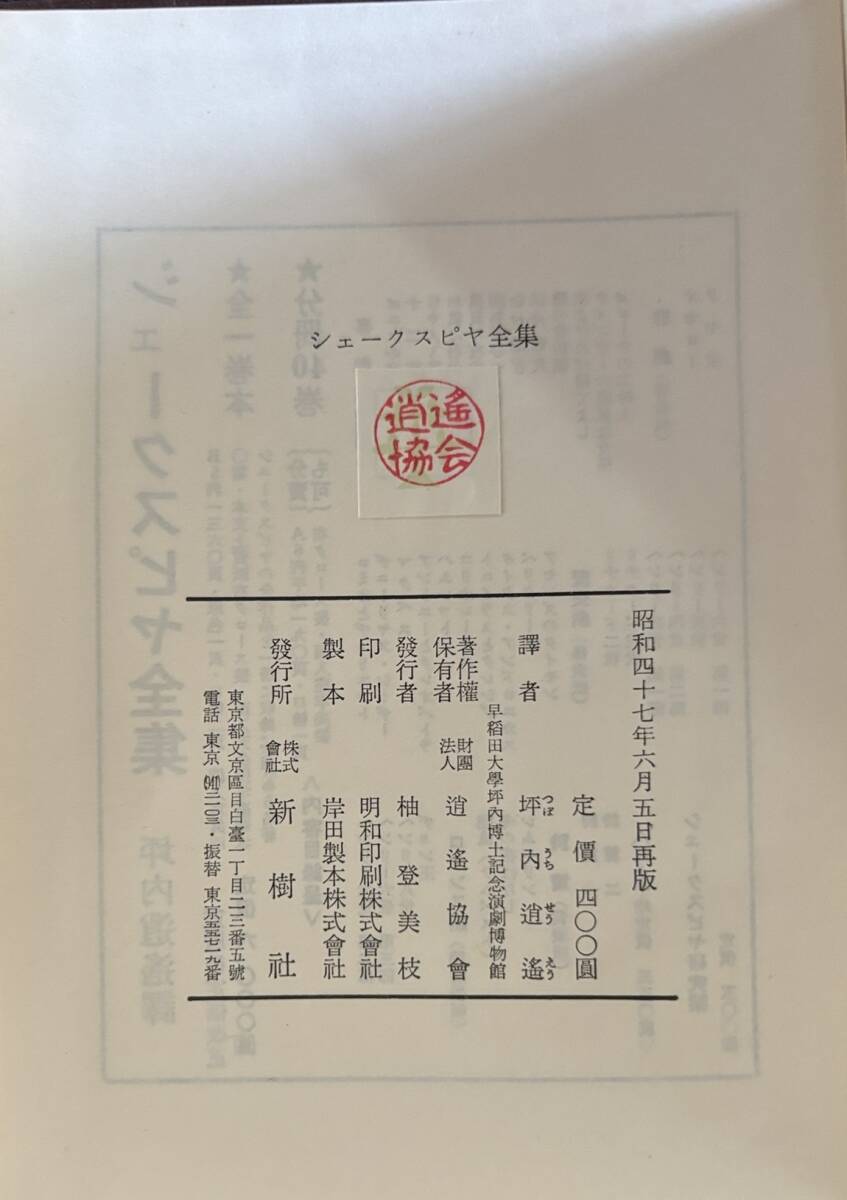 シェークスピヤ全集
逍遙
協会
昭和四十七年六月五日再版
定價 四〇〇圓
譯者 坪内逍遙
つぼ うち せう えう
早稻田大學坪內博士記念演劇博物館
著作權
保有者 財團
法人 逍遙協會
發行者 柚登美枝
印刷 明和印刷株式會社
製本 岸田製本株式會社
發行所 株式
會社 新樹社
東京都文京區目白臺一丁目二三番五號
電話 東京 ・振替 東京五五七一九番